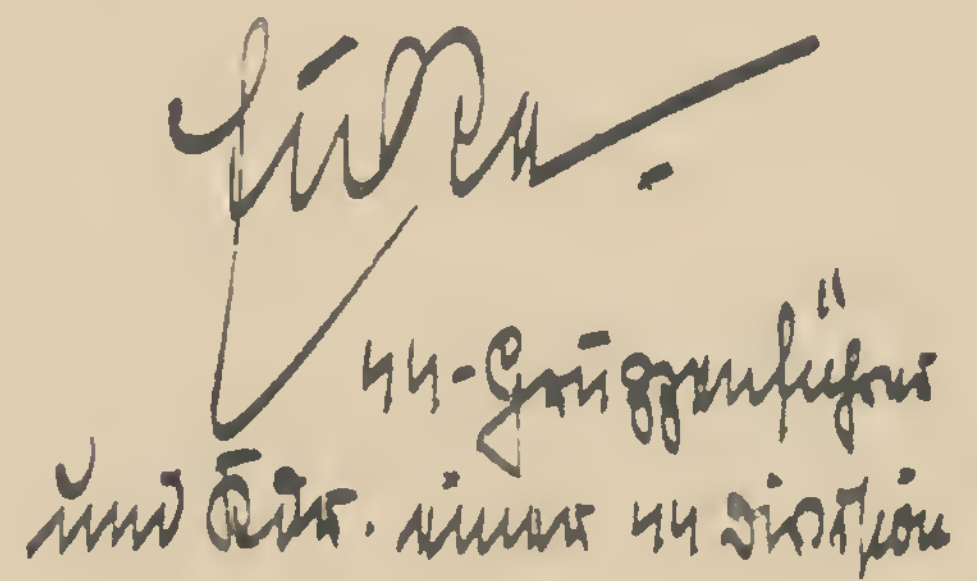 SS-Gruppenführer
und Kdr. einer SS Division